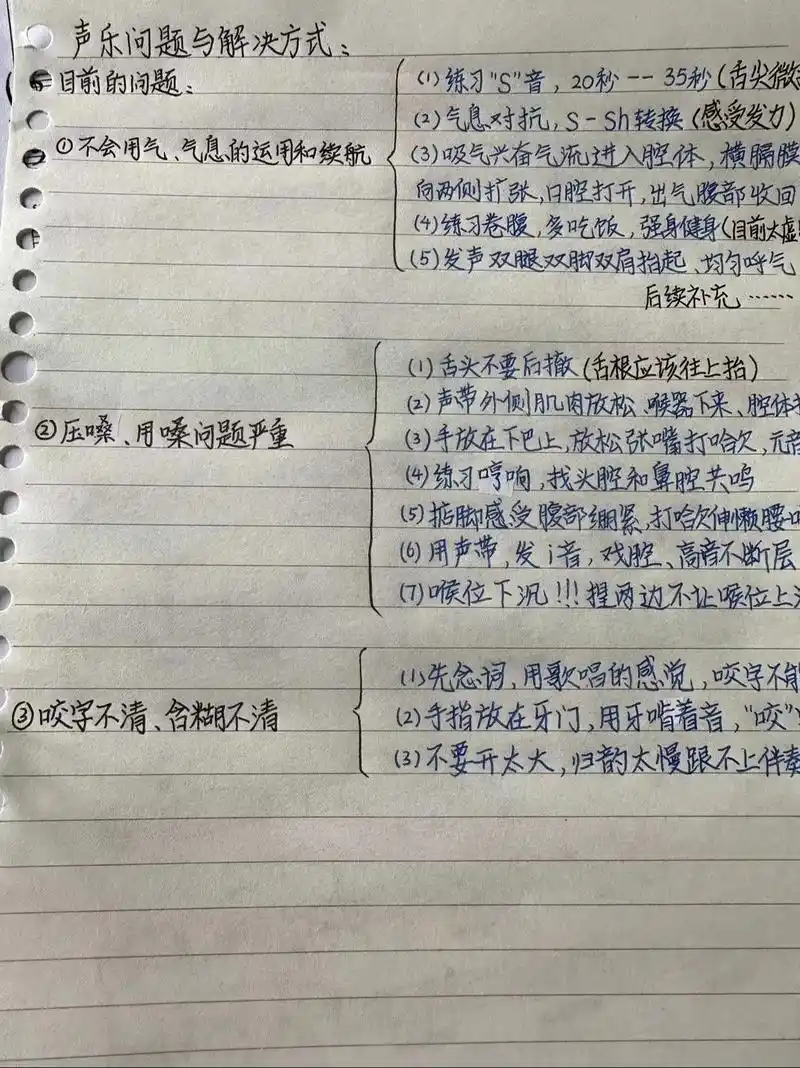 声乐问题与解决方式：
目前的问题：
①不会用气、气息的运用和续航
(1)练习"S"音，20秒--35秒(舌尖微
(2)气息对抗，S-Sh转换(感受发力)
(3)吸气兴奋气流进入腔体，横膈膜
向两侧扩张，口腔打开，出气腹部收回
(4)练习卷腹，多吃饭，强身健身(目前太虚
(5)发声双腿双脚双肩抬起、均匀呼气
后续补充……
②压嗓、用嗓问题严重
(1)舌头不要后撤(舌根应该往上抬)
(2)声带外侧肌肉放松、喉器下来、腔体
(3)手放在下巴上，放松张嘴打哈欠，元音
(4)练习哼响，找头腔和鼻腔共鸣
(5)掂脚感受腹部绷紧，打哈欠伸懒腰
(6)用声带，发i音，戏腔、高音不断层
(7)喉位下沉!!!捏两边不让喉位上
③咬字不清、含糊不清
(1)先念词，用歌唱的感觉，咬字不能
(2)手指放在牙门，用牙啃着音，"咬"
(3)不要开太大，归韵太慢跟不上伴奏